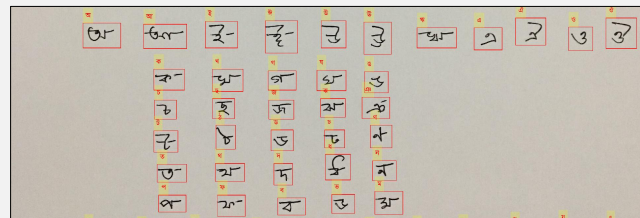 অ আ ই ঈ উ ঊ ঋ এ ঐ ও ঔ
ক খ গ ঘ ঙ
চ ছ জ ঝ ঞ
ট ঠ ড ঢ ণ
ত থ দ ধ ন
প ফ ব ভ ম